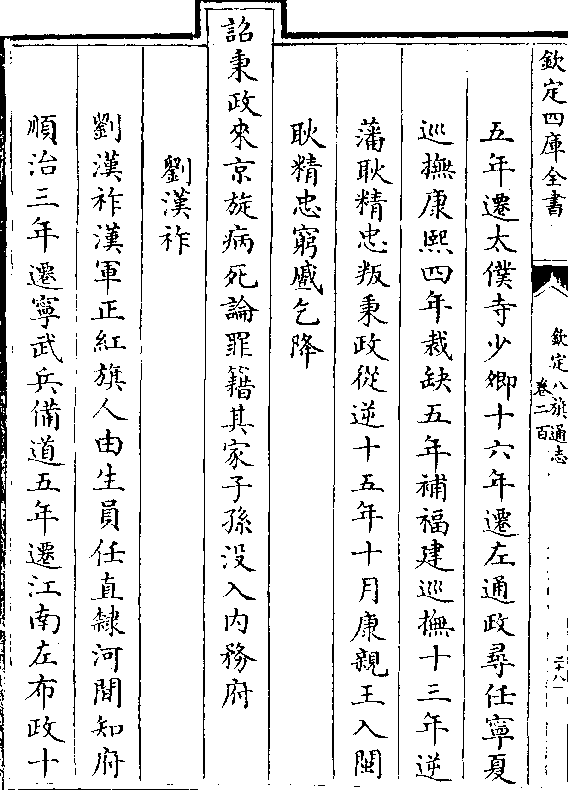 欽定四庫全書
欽定八旗通志
卷二百
五年遷太僕寺少卿十六年遷左通政尋任寧夏
巡撫康熙四年裁缺五年補福建巡撫十三年逆
藩耿精忠叛秉政從逆十五年十月康親王入閩
耿精忠窮蹙乞降
詔秉政來京旋病死論罪籍其家子孫沒入内務府
劉漢祚
劉漢祚漢軍正紅旗人由生員任直隸河間知府
順治三年遷寧武兵備道五年遷江南左布政十